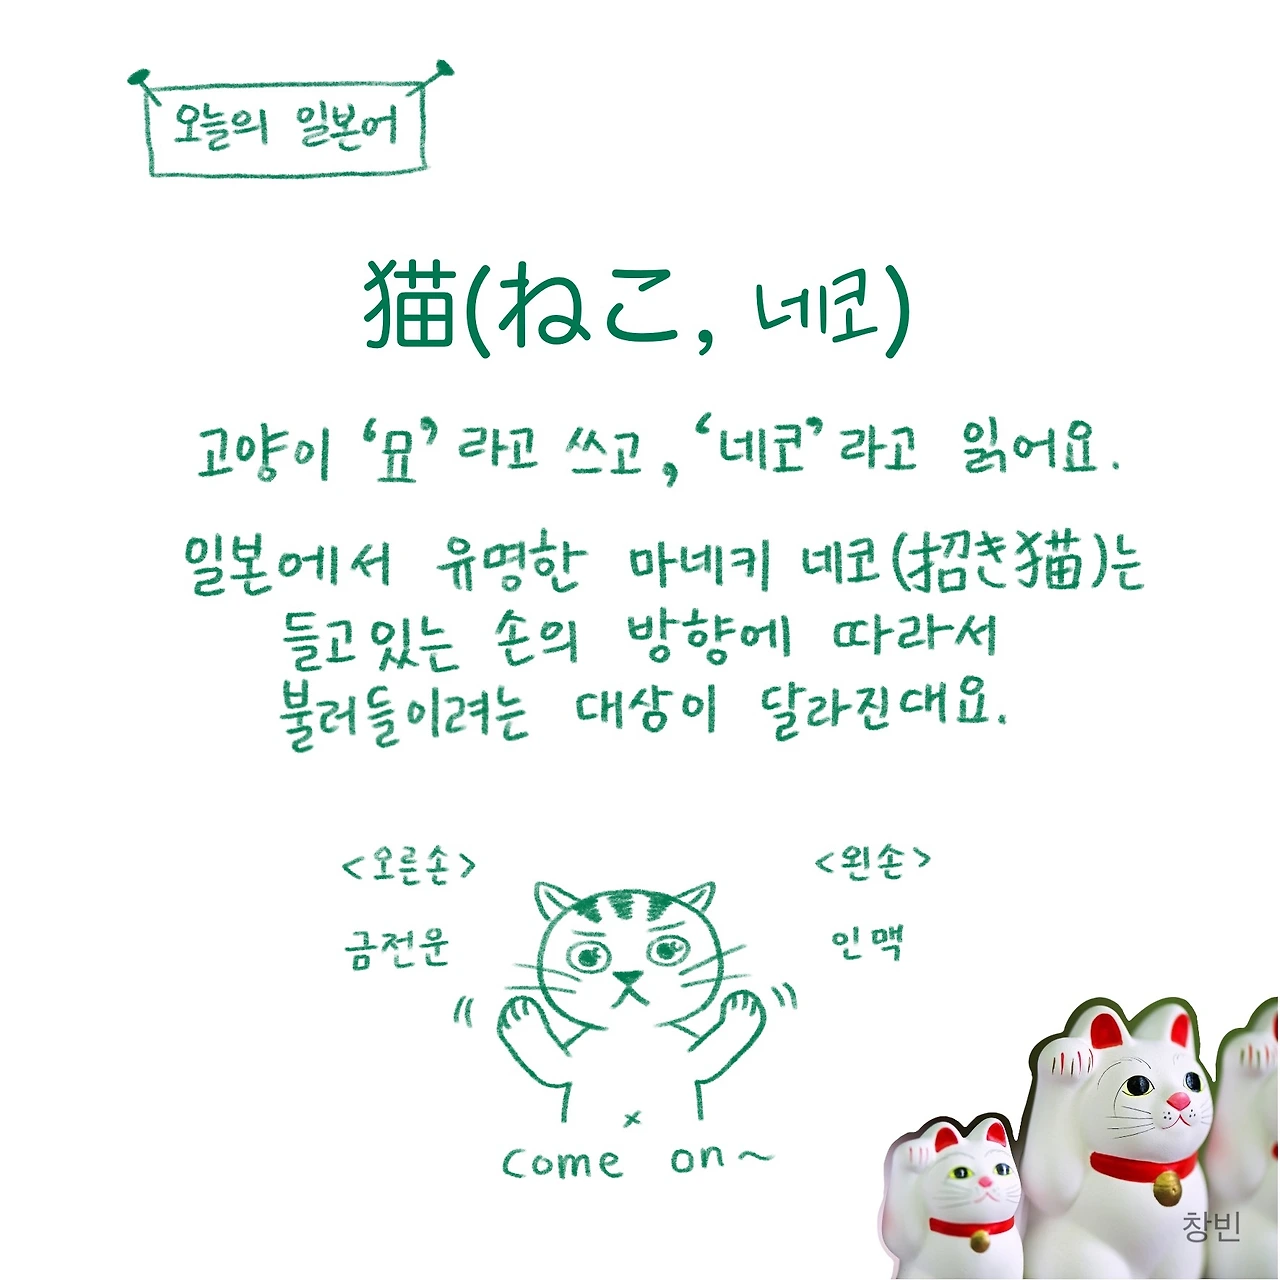 오늘의 일본어
猫(ねこ, 네코)
고양이 ‘묘’ 라고 쓰고, ‘네코’ 라고 읽어요.
일본에서 유명한 마네키 네코(招き猫)는
들고있는 손의 방향에 따라서
불러들이려는 대상이 달라진대요.
<오른손>
금전운
<왼손>
인맥
come on~
창빈